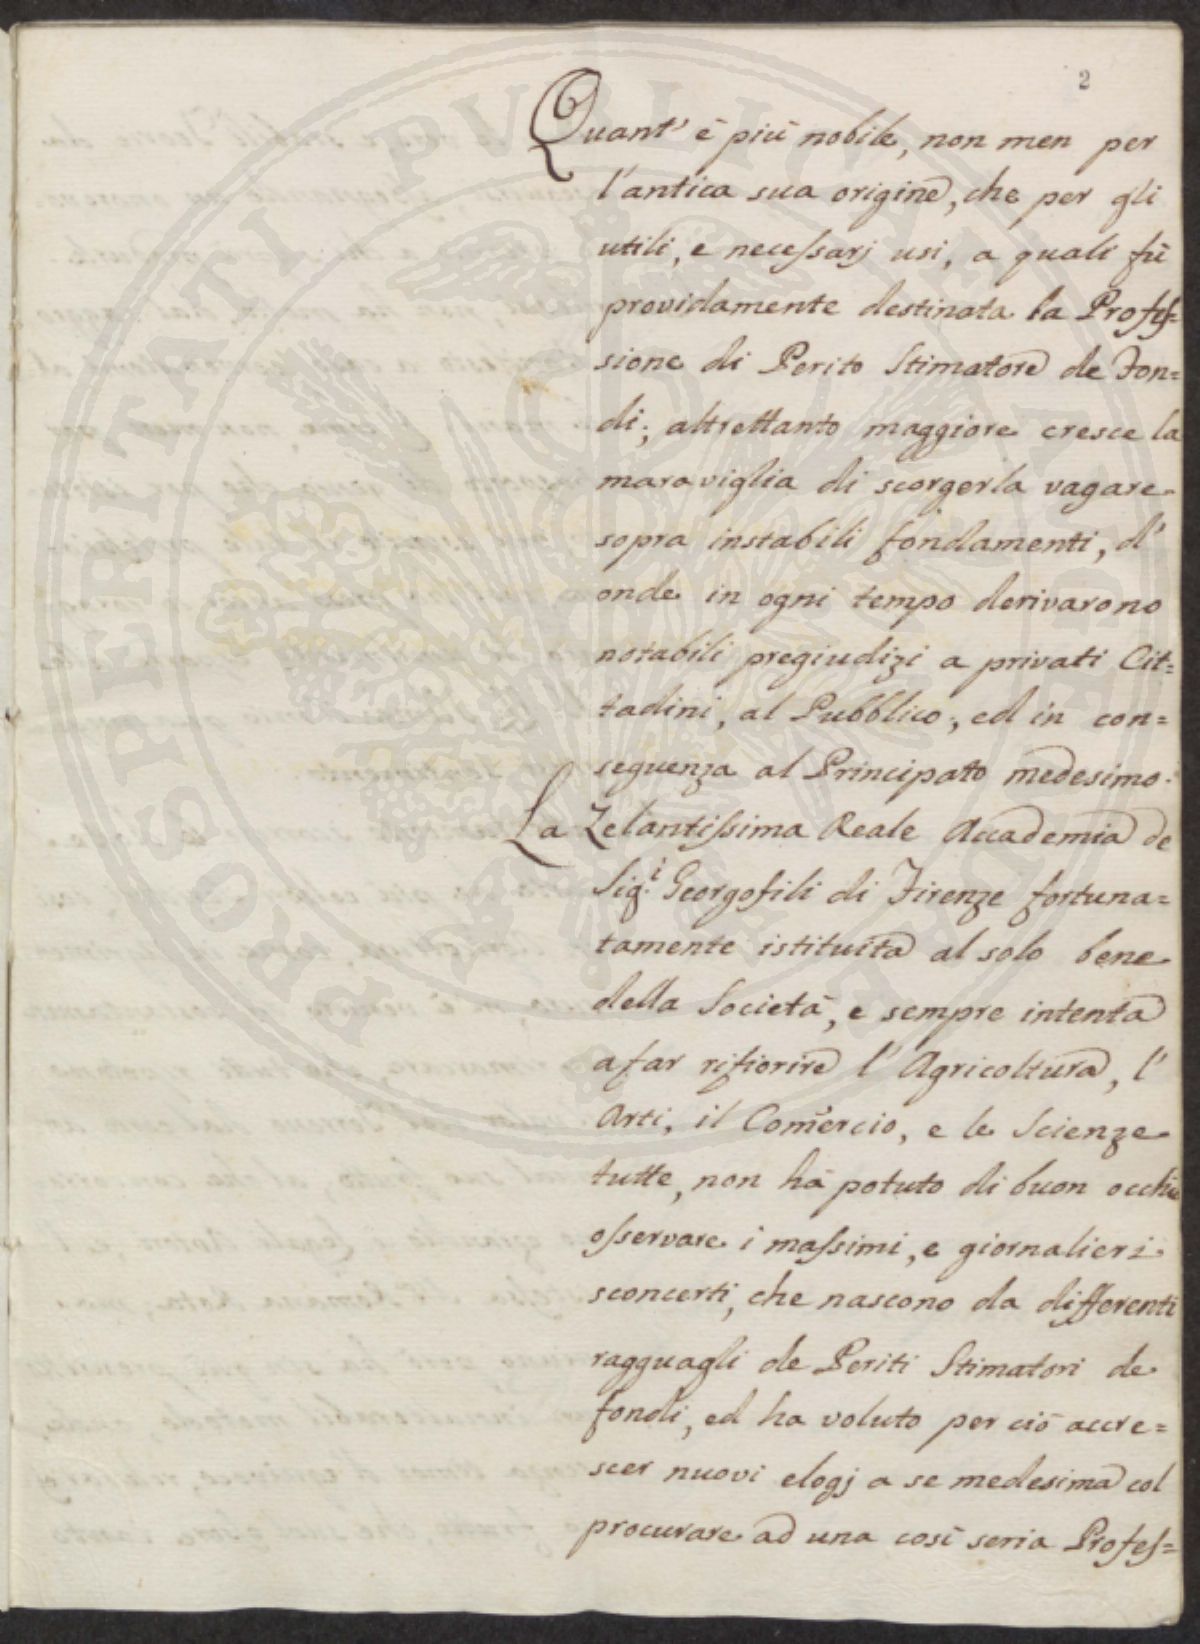 2
Quant' è più nobile, non men per
l'antica sua origine, che per gli
utili, e necessarj usi, a quali fù
providamente destinata la Profes=
sione di Perito Stimatore de Fon=
di; altrettanto maggiore cresce la
maraviglia di scorgerla vagare
sopra instabili fondamenti, d'
onde in ogni tempo derivarono
notabili pregiudizi a privati Cit=
tadini, al Pubblico, ed in con=
seguenza al Principato medesimo.
La Zelantissima Reale Accademia de
Sig.i Georgofili di Firenze fortuna=
tamente istituita al solo bene
della Società, e sempre intenta
a far rifiorire l' Agricoltura, l'
Arti, il Com̃ercio, e le Scienze
tutte, non hà potuto di buon occhio
osservare i massimi, e giornalieri
sconcerti, che nascono da differenti
ragguagli de Periti Stimatori de
fondi, ed ha voluto per ciò accre=
scer nuovi elogj a se medesima col
procurare ad una così seria Profes=
PROSPERITATI PUBLICAE AUGENDAE